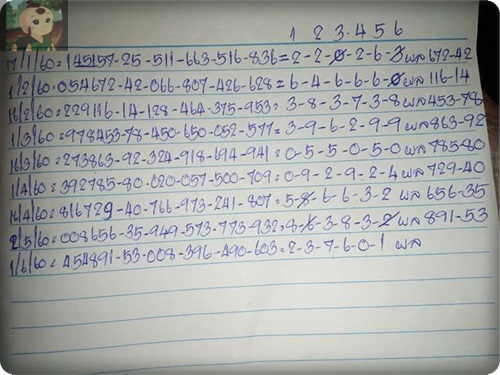 1 2 3-4 5 6
17/1/60=145157-25-511-663-516-836=2-2-0-2-6-3 ผล 672-42
1/2/60=054672-42-066-807-426-628=6-4-6-6-6-0 ผล 116-14
16/2/60=229116-14-128-464-375-953=3-8-3-7-3-8 ผล 453-78
1/3/60=978453-78-450-650-052-577=3-9-6-2-9-9 ผล 863-92
16/3/60=273863-92-324-918-694-941=0-5-5-0-5-0 ผล 785-80
1/4/60=392785-80-020-057-500-709=0-9-2-9-2-4 ผล 729-40
16/4/60=816729-40-766-973-241-807=5-8-6-6-3-2 ผล 656-35
2/5/60=008656-35-949-573-773-932=8-6-3-8-3-2 ผล 891-53
1/6/60=454891-53-008-396-490-603=2-3-7-6-0-1 ผล